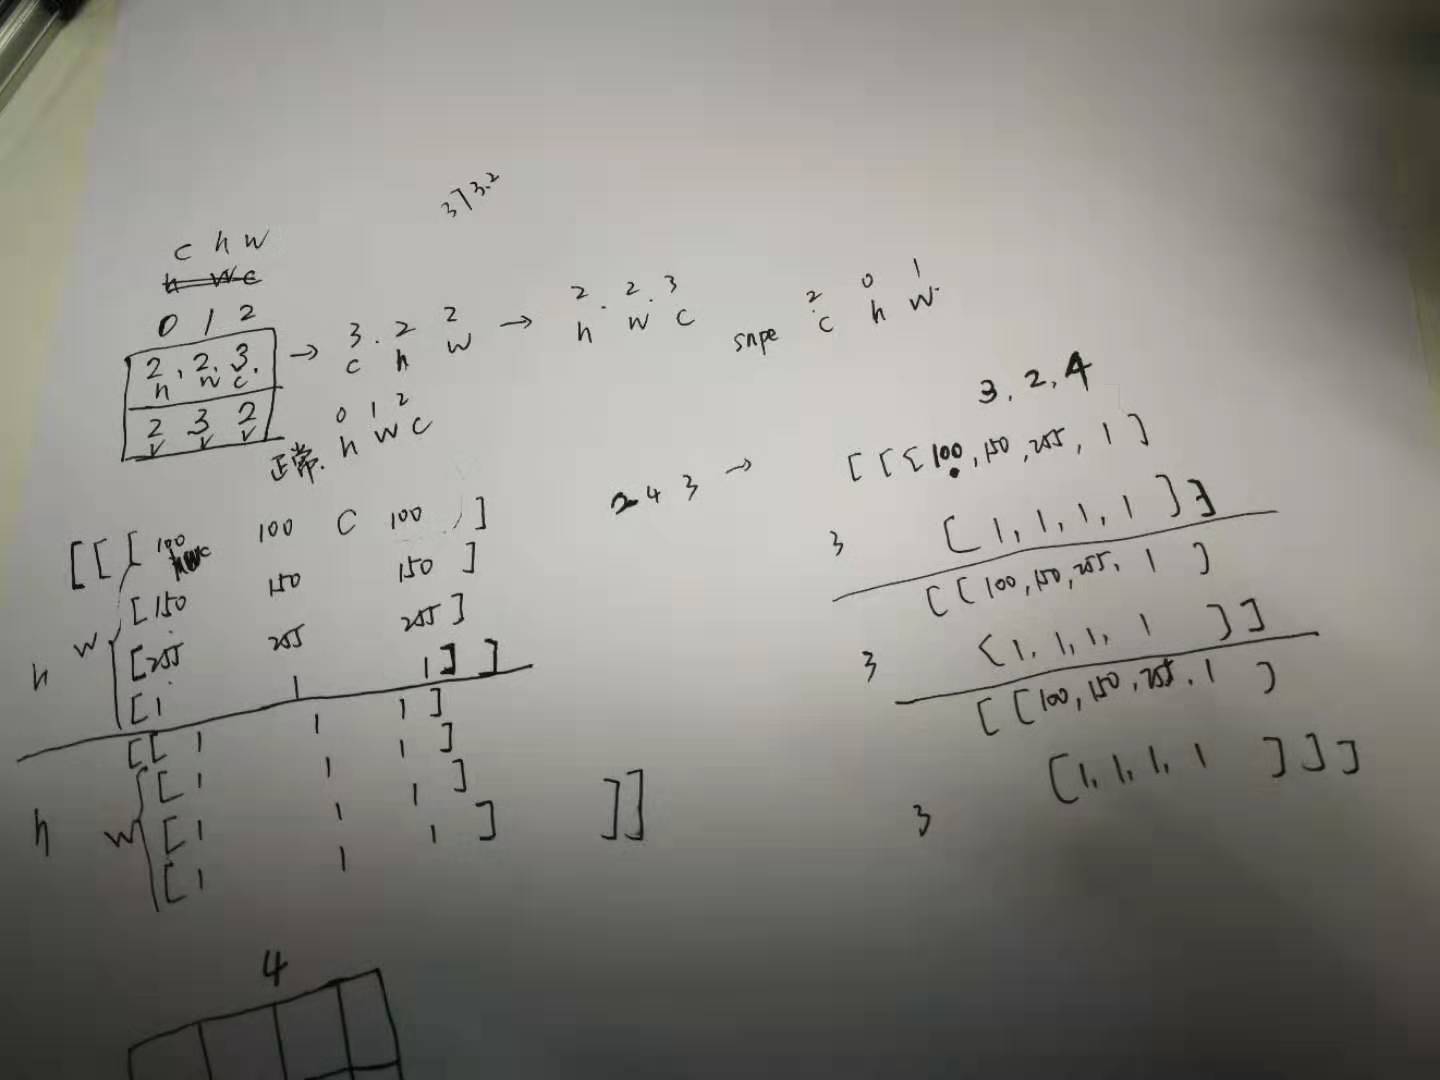 3] 3.2
c h w
h w c
0 1 2
2, 2, 3. → 3. 2 2 → 2. 2. 3 snpe 2 0 1
h w c. c h w h w c c h w.
2 3 2
0 1 2
正常. h w c
3, 2, 4
2 4 3 →
[ [ [ 100 100 C 100 ]
[150 150 150 ]
h w [255 255 255]
[1 1 1] ]
[[ 1 1 1 ]
[ 1 1 1 ]
h w [ 1 1 1 ]
[ 1 1 1 ] ]]
[ [ [ 100, 150, 255, 1 ]
3 [ 1, 1, 1, 1 ] ]
[ [ 100, 150, 255, 1 ]
3 [ 1, 1, 1, 1 ] ]
[ [ 100, 150, 255, 1 ]
3 [ 1, 1, 1, 1 ] ] ]
4